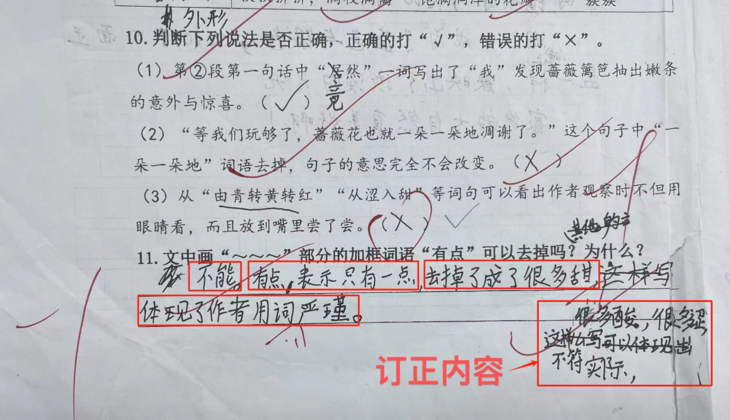 外形
10. 判断下列说法是否正确，正确的打“√”，错误的打“×”。
（1）第②段第一句话中“居然”一词写出了“我”发现蔷薇篱笆抽出嫩条
竟
的意外与惊喜。（√）
（2）“等我们玩够了，蔷薇花也就一朵一朵地凋谢了。”这个句子中“一
朵一朵地”词语去掉，句子的意思完全不会改变。（X）
（3）从“由青转黄转红”“从涩入甜”等词句可以看出作者观察时不但用
眼睛看，而且放到嘴里尝了尝。（X）
11. 文中画“～～～”部分的加框词语“有点”可以去掉吗？为什么？
不能，有点，表示只有一点，去掉了成了很多甜，这样写
体现了作者用词严瑾。
很多酸，很多涩
这样写可以体现出
不符实际，
订正内容